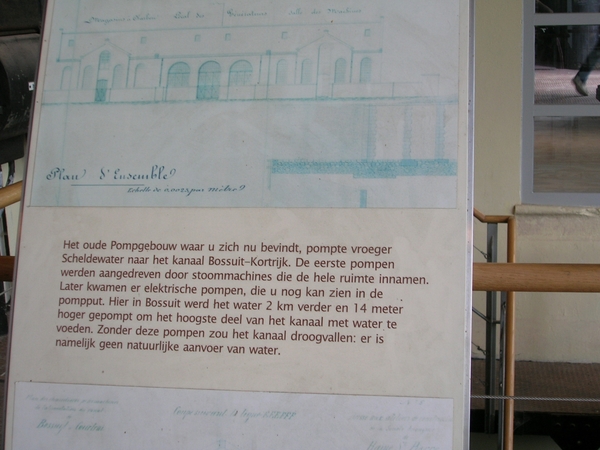 Plan d'Ensemble
Het oude Pompgebouw waar u zich nu bevindt, pompte vroeger
Scheldewater naar het kanaal Bossuit–Kortrijk. De eerste pompen
werden aangedreven door stoommachines die de hele ruimte innamen.
Later kwamen er elektrische pompen, die u nog kan zien in de
pompput. Hier in Bossuit werd het water 2 km verder en 14 meter
hoger gepompt om het hoogste deel van het kanaal met water te
voeden. Zonder deze pompen zou het kanaal droogvallen: er is
namelijk geen natuurlijke aanvoer van water.